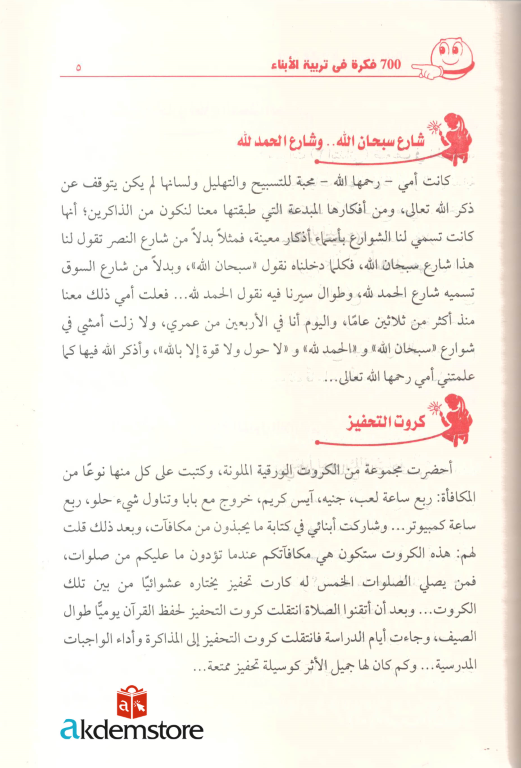 700 فكرة فى تربية الأبناء
٥
شارع سبحان الله.. وشارع الحمد لله
كانت أمي - رحمها الله - محبة للتسبيح والتهليل ولسانها لم يكن يتوقف عن
ذكر الله تعالى، ومن أفكارها المبدعة التي طبقتها معنا لنكون من الذاكرين؛ أنها
كانت تسمي لنا الشوارع بأسماء أذكار معينة، فمثلاً بدلاً من شارع النصر تقول لنا
هذا شارع سبحان الله، فكلما دخلناه نقول «سبحان الله»، وبدلاً من شارع السوق
تسميه شارع الحمد لله، وطوال سيرنا فيه نقول الحمد لله... فعلت أمي ذلك معنا
منذ أكثر من ثلاثين عامًا، واليوم أنا في الأربعين من عمري، ولا زلت أمشي في
شوارع «سبحان الله» و «الحمد لله» و «لا حول ولا قوة إلا بالله»، وأذكر الله فيها كما
علمتني أمي رحمها الله تعالى...
كروت التحفيز
أحضرت مجموعة من الكروت الورقية الملونة، وكتبت على كل منها نوعًا من
المكافأة: ربع ساعة لعب، جنيه، آيس كريم، خروج مع بابا وتناول شيء حلو، ربع
ساعة كمبيوتر... وشاركت أبنائي في كتابة ما يحبذون من مكافآت، وبعد ذلك قلت
لهم: هذه الكروت ستكون هي مكافآتكم عندما تؤدون ما عليكم من صلوات،
فمن يصلي الصلوات الخمس له كارت تحفيز يختاره عشوائيًا من بين تلك
الكروت... وبعد أن أتقنوا الصلاة انتقلت كروت التحفيز لحفظ القرآن يوميًّا طوال
الصيف، وجاءت أيام الدراسة فانتقلت كروت التحفيز إلى المذاكرة وأداء الواجبات
المدرسية... وكم كان لها جميل الأثر كوسيلة تحفيز ممتعة...
akdemstore